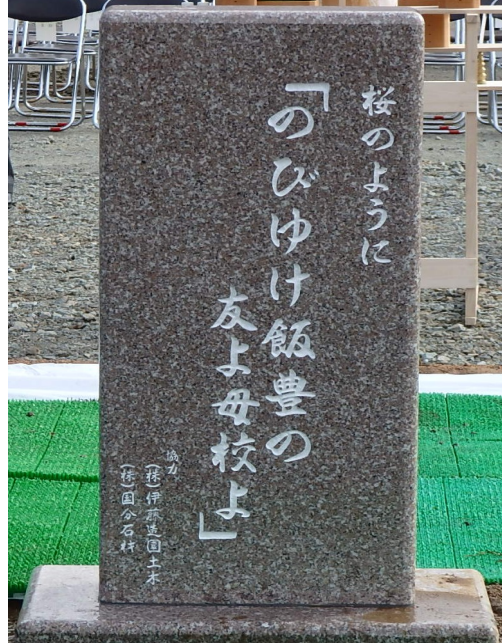 桜のように
「のびゆけ飯豊の
友よ母校よ」
協力
(株)伊藤造園土木
(株)国分石材